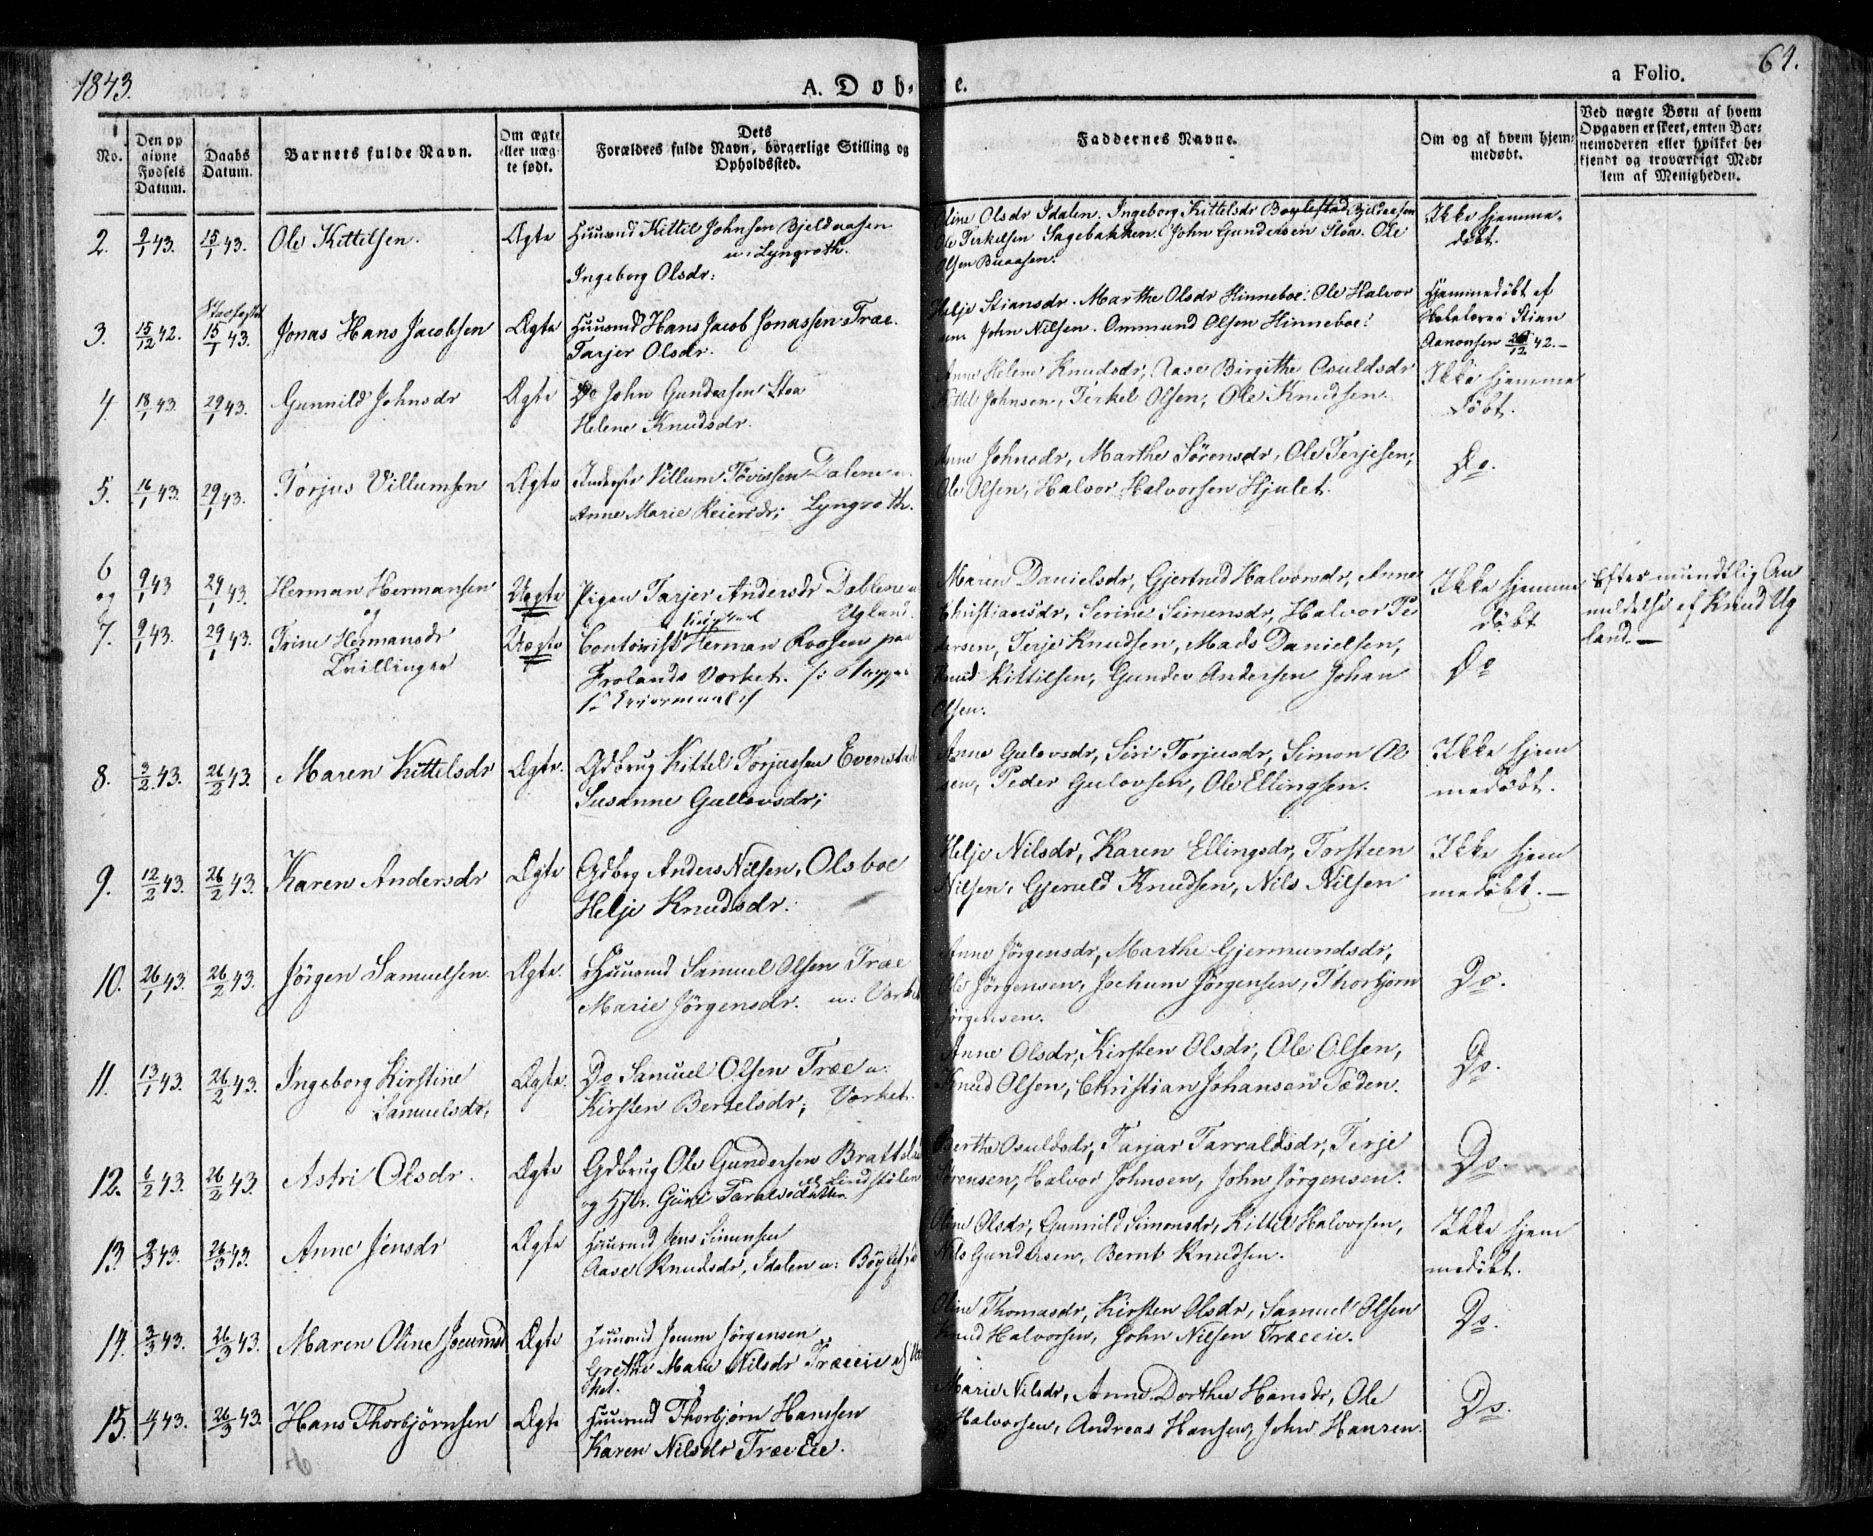 1843.
A. Døb-
e.
a Folio.
64.
No.
Den op
givne
Fødsels
Datum.
Daabs
Datum.
Barnets fulde Navn.
Om ægte
eller uæg-
te født.
Dets
Forældres fulde Navn, borgerlige Stilling og
Opholdssted.
Faddernes Navne.
Om og af hvem hjem-
medøbt.
Ved uægte Børn af hvem
Opgaven er skeet, enten Bar-
nemoderen eller hvilket be-
kjendt og troværdigt Med-
lem af Menigheden.
2. 9/1 43. 15/1 43. Ole Kittelsen. Ægte Huusmd Kittil Johnsen Bjeldaasen
u: Lyngroth.
Ingeborg Olsdr:
Oline Olsdr Idalen. Ingeborg Kittelsdr Bøylestad Bjeldaasen
Ole Terkelsen Sagebakken. John Gundersen Stoa. Ole
Olsen Buaasen.
Ikke hjemme-
døbt.
3. 15/12 42. 15/1 43. Jonas Hans Jacobsen Ægte Huusmd Hans Jacob Jonassen Træe.
Tarjer Olsdr.
Helje Stiansdr. Marthe Olsdr Hinneboe. Ole Halvor
sen. John Nilsen. Ommund Olsen Hinneboe.
Hjemmedøbt af
Skolelærer Stian
Aanonsen 42.
4. 18/1 43. 29/1 43. Gunnild Johnsdr Ægte Do John Gundersen Stoa
Helene Knudsdr.
Anne Helene Knudsdr, Aase Birgithe Osuldsdr
Kittil Johnsen, Terkel Olsen, Ole Knudsen.
Ikke hjemme
døbt.
5. 16/1 43. 29/1 43. Torjus Villumsen Ægte Inderste Villum Tovissen Dalene u.
Anne Marie Reiersdr; Lyngroth.
Anne Johnsdr, Marthe Sørensdr, Ole Terjesen,
Ole Olsen, Halvor Halvorsen Hjulet.
Do.
6
og 9/1 43 29/1 43. Herman Hermansen Uægte Pigen Tarjer Andersdr Dablene u
og Ugland.
7. 9/1 43. 29/1 43. Trine Hermansdr Uægte Contoirist Herman Roosen paa
Tvillinger
Frolands Værket.
Maren Danielsdr, Gjertrud Halvorsdr, Anne
Christiansdr, Serine Simensdr, Halvor Pe
dersen, Terje Knudsen, Mads Danielsen,
Knud Kittilsen, Gunder Andersen Johan
Olsen.
Ikke hjemme
døbt
Do
Efter mundtlig An
meldelse af Knud Ug
land.
8. 3/2 43. 26/2 43. Maren Kittelsdr Ægte. Gdbrug Kittel Torjussen Evenstad
Susanne Gullovsdr;
Anne Gulovsdr, Siri Torjusdr, Simon Ol
sen, Peder Gulovsen, Ole Ellingsen.
Ikke hjem
medøbt.
9. 12/2 43. 26/2 43. Karen Andersdr Ægte Gdbrg Anders Nilsen, Olsboe
Helje Knudsdr.
Helje Nilsdr, Karen Ellingsdr, Torsteen
Nilsen, Gjeruld Knudsen, Nils Nilsen
Ikke hjem
medøbt.
10. 26/1 43. 26/2 43. Jörgen Samuelsen. Ægte. Huusmd Samuel Olsen Træe
Marie Jörgensdr. u: Værket
Anne Jörgensdr, Marthe Gjermundsdr,
Ole Jörgensen, Jochum Jörgensen, Thorbjörn
Jörgensen.
Do.
11. 13/1 43. 26/2 43. Ingeborg Kirstine Ægte. Do Samuel Olsen Træe u.
Samuelsdr, Kirsten Bertelsdr; Værket.
Anne Olsdr, Kirsten Olsdr, Ole Olsen,
Knud Olsen, Christian Johansen Tæden.
Do.
12. 6/2 43. 26/2 43. Astri Olsdr. Ægte Gdbrug Ole Gundersen Brattelan
og Hstr. Guri Taraldsdatter
Berthe Osuldsdr, Tarjar Tarraldsdr, Terje
Sørensen, Halvor Johnsen, John Jörgensen.
Do.
13. 43. 26/3 43. Anne Jensdr Ægte Huusmd Jens Simensen
Aase Knudsdr, Idalen u: Bøylestad
Oline Olsdr, Gunnild Simonsdr, Kittil Halvorsen,
Nils Gundersen, Bernt Knudsen.
Ikke hjem
medøbt.
14. 3/3 43. 26/3 43. Maren Oline Jocumsd Ægte Huusmd Jocum Jörgensen
Grethe Marie Nilsdr Træeeie
Oline Thomasdr, Kirsten Olsdr, Samuel Olsen
Knud Halvorsen, John Nilsen Træeeie.
Do.
15. 43. 26/3 43. Hans Thorbjørnsen Ægte Huusmd Thorbjørn Hanssen
Karen Nilsdr Træe Eie.
Marie Nilsdr, Anne Dorthea Hansdr, Ole
Halvorsen, Andreas Hansen, John Hansen.
Do.